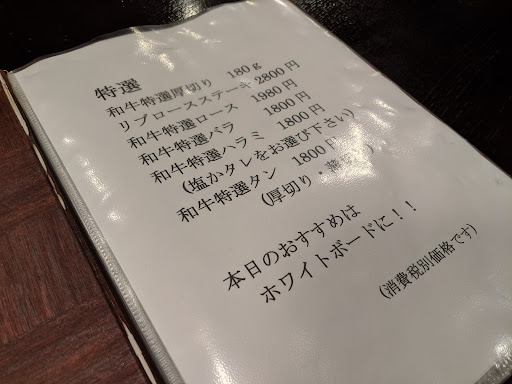 特選
和牛特選厚切り 180g
リブロースステーキ 2800円
和牛特選ロース 1980円
和牛特選バラ 1800円
和牛特選ハラミ 1800円
(塩かタレをお選び下さい)
和牛特選タン 1800円
(厚切り・
本日のおすすめは
ホワイトボードに!!
(消費税別価格です)